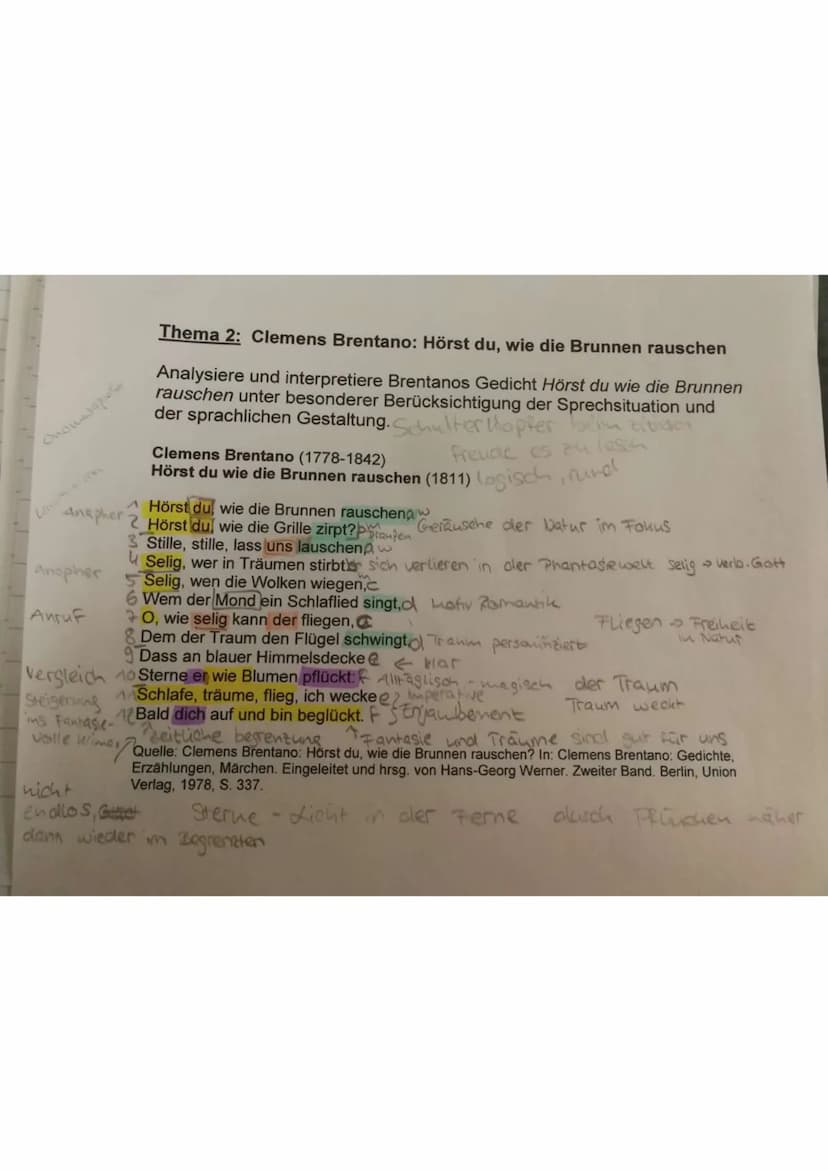 Thema 2: Clemens Brentano: Hörst du, wie die Brunnen rauschen
Analysiere und interpretiere Brentanos Gedicht Hörst du wie die Brunnen
rauschen unter besonderer Berücksichtigung der Sprechsituation und
der sprachlichen Gestaltung. Schulterklopfer beim
Freude es zu lesen
Clemens Brentano (1778-1842)
Hörst du wie die Brunnen rauschen (1811) logisch, rund
Anapher 1 Hörst du, wie die Brunnen rauschen, a w
2 Hörst du, wie die Grille zirpt? b m Geräusche der Natur im Fokus
3 Stille, stille, lass uns lauschen, a w
Anapher 4 Selig, wer in Träumen stirbt. b sich verlieren in der Phantasiewelt selig → verb. Gott
5 Selig, wen die Wolken wiegen, c
6 Wem der Mond ein Schlaflied singt, d Motiv Romantik
Anruf 7 O, wie selig kann der fliegen, c Fliegen → Freiheit
in Natur
8 Dem der Traum den Flügel schwingt, d Traum personifiziert
9 Dass an blauer Himmelsdecke e ← klar
Vergleich 10 Sterne er wie Blumen pflückt: f Alltäglisch - magisch der Traum
Steigerung 11 Schlafe, träume, flieg, ich wecke e Imperative Traum weckt
ins Fantasie- 12 Bald dich auf und bin beglückt. f
volle zeitliche begrenzung Fantasie und Träume sind gut für uns
Quelle: Clemens Brentano: Hörst du, wie die Brunnen rauschen? In: Clemens Brentano: Gedichte,
Erzählungen, Märchen. Eingeleitet und hrsg. von Hans-Georg Werner. Zweiter Band. Berlin, Union
Verlag, 1978, S. 337.
nicht
endlos, Sterne - Licht in der Ferne durch Pflücken näher
dann wieder im Begrenzten